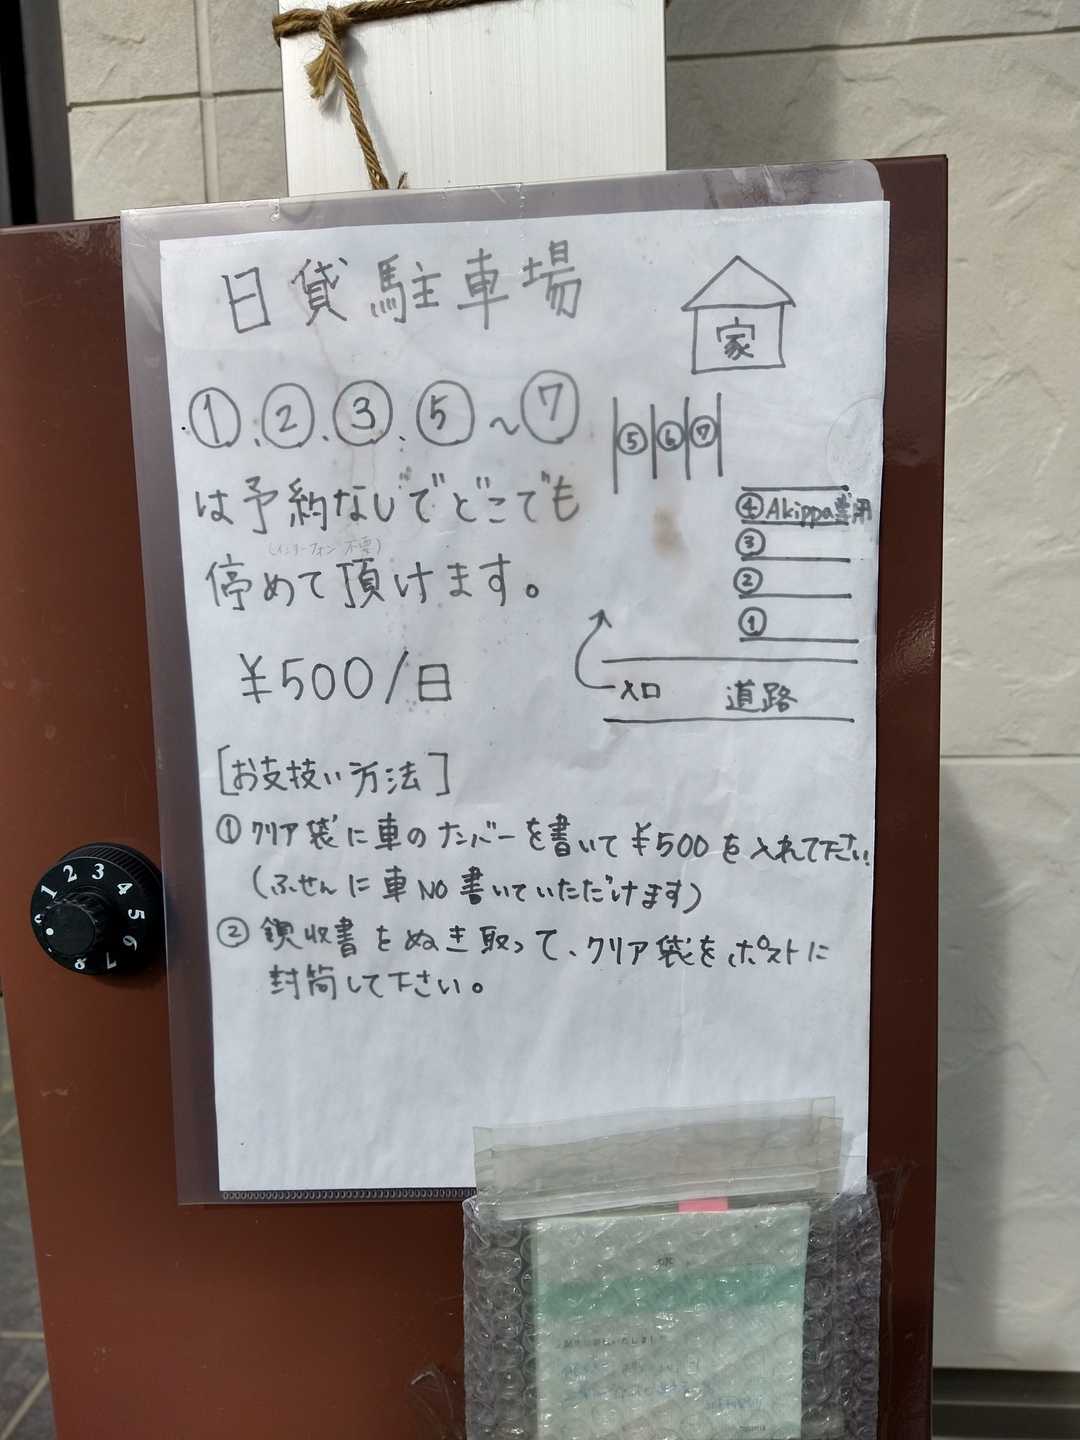 日貸駐車場
①、②、③、⑤～⑦
は予約なしでどこでも
(インターフォン不要)
停めて頂けます。
¥500/日
家
⑤ ⑥ ⑦
④ Akippa専用
③
②
①
入口 道路
[お支技い方法]
① クリア袋に車のナンバーを書いて¥500を入れて下さい
(ふせんに車NO書いていただけます)
② 領収書をぬき取って、クリア袋をポストに
封筒して下さい。
1 2 3 4 5 6 7 8